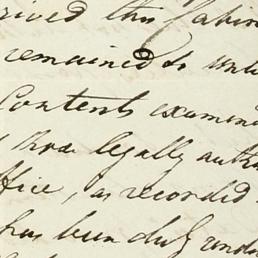 rived this
remained to
Contents examin
those legally auth
ffice, as recorded
has been duly und